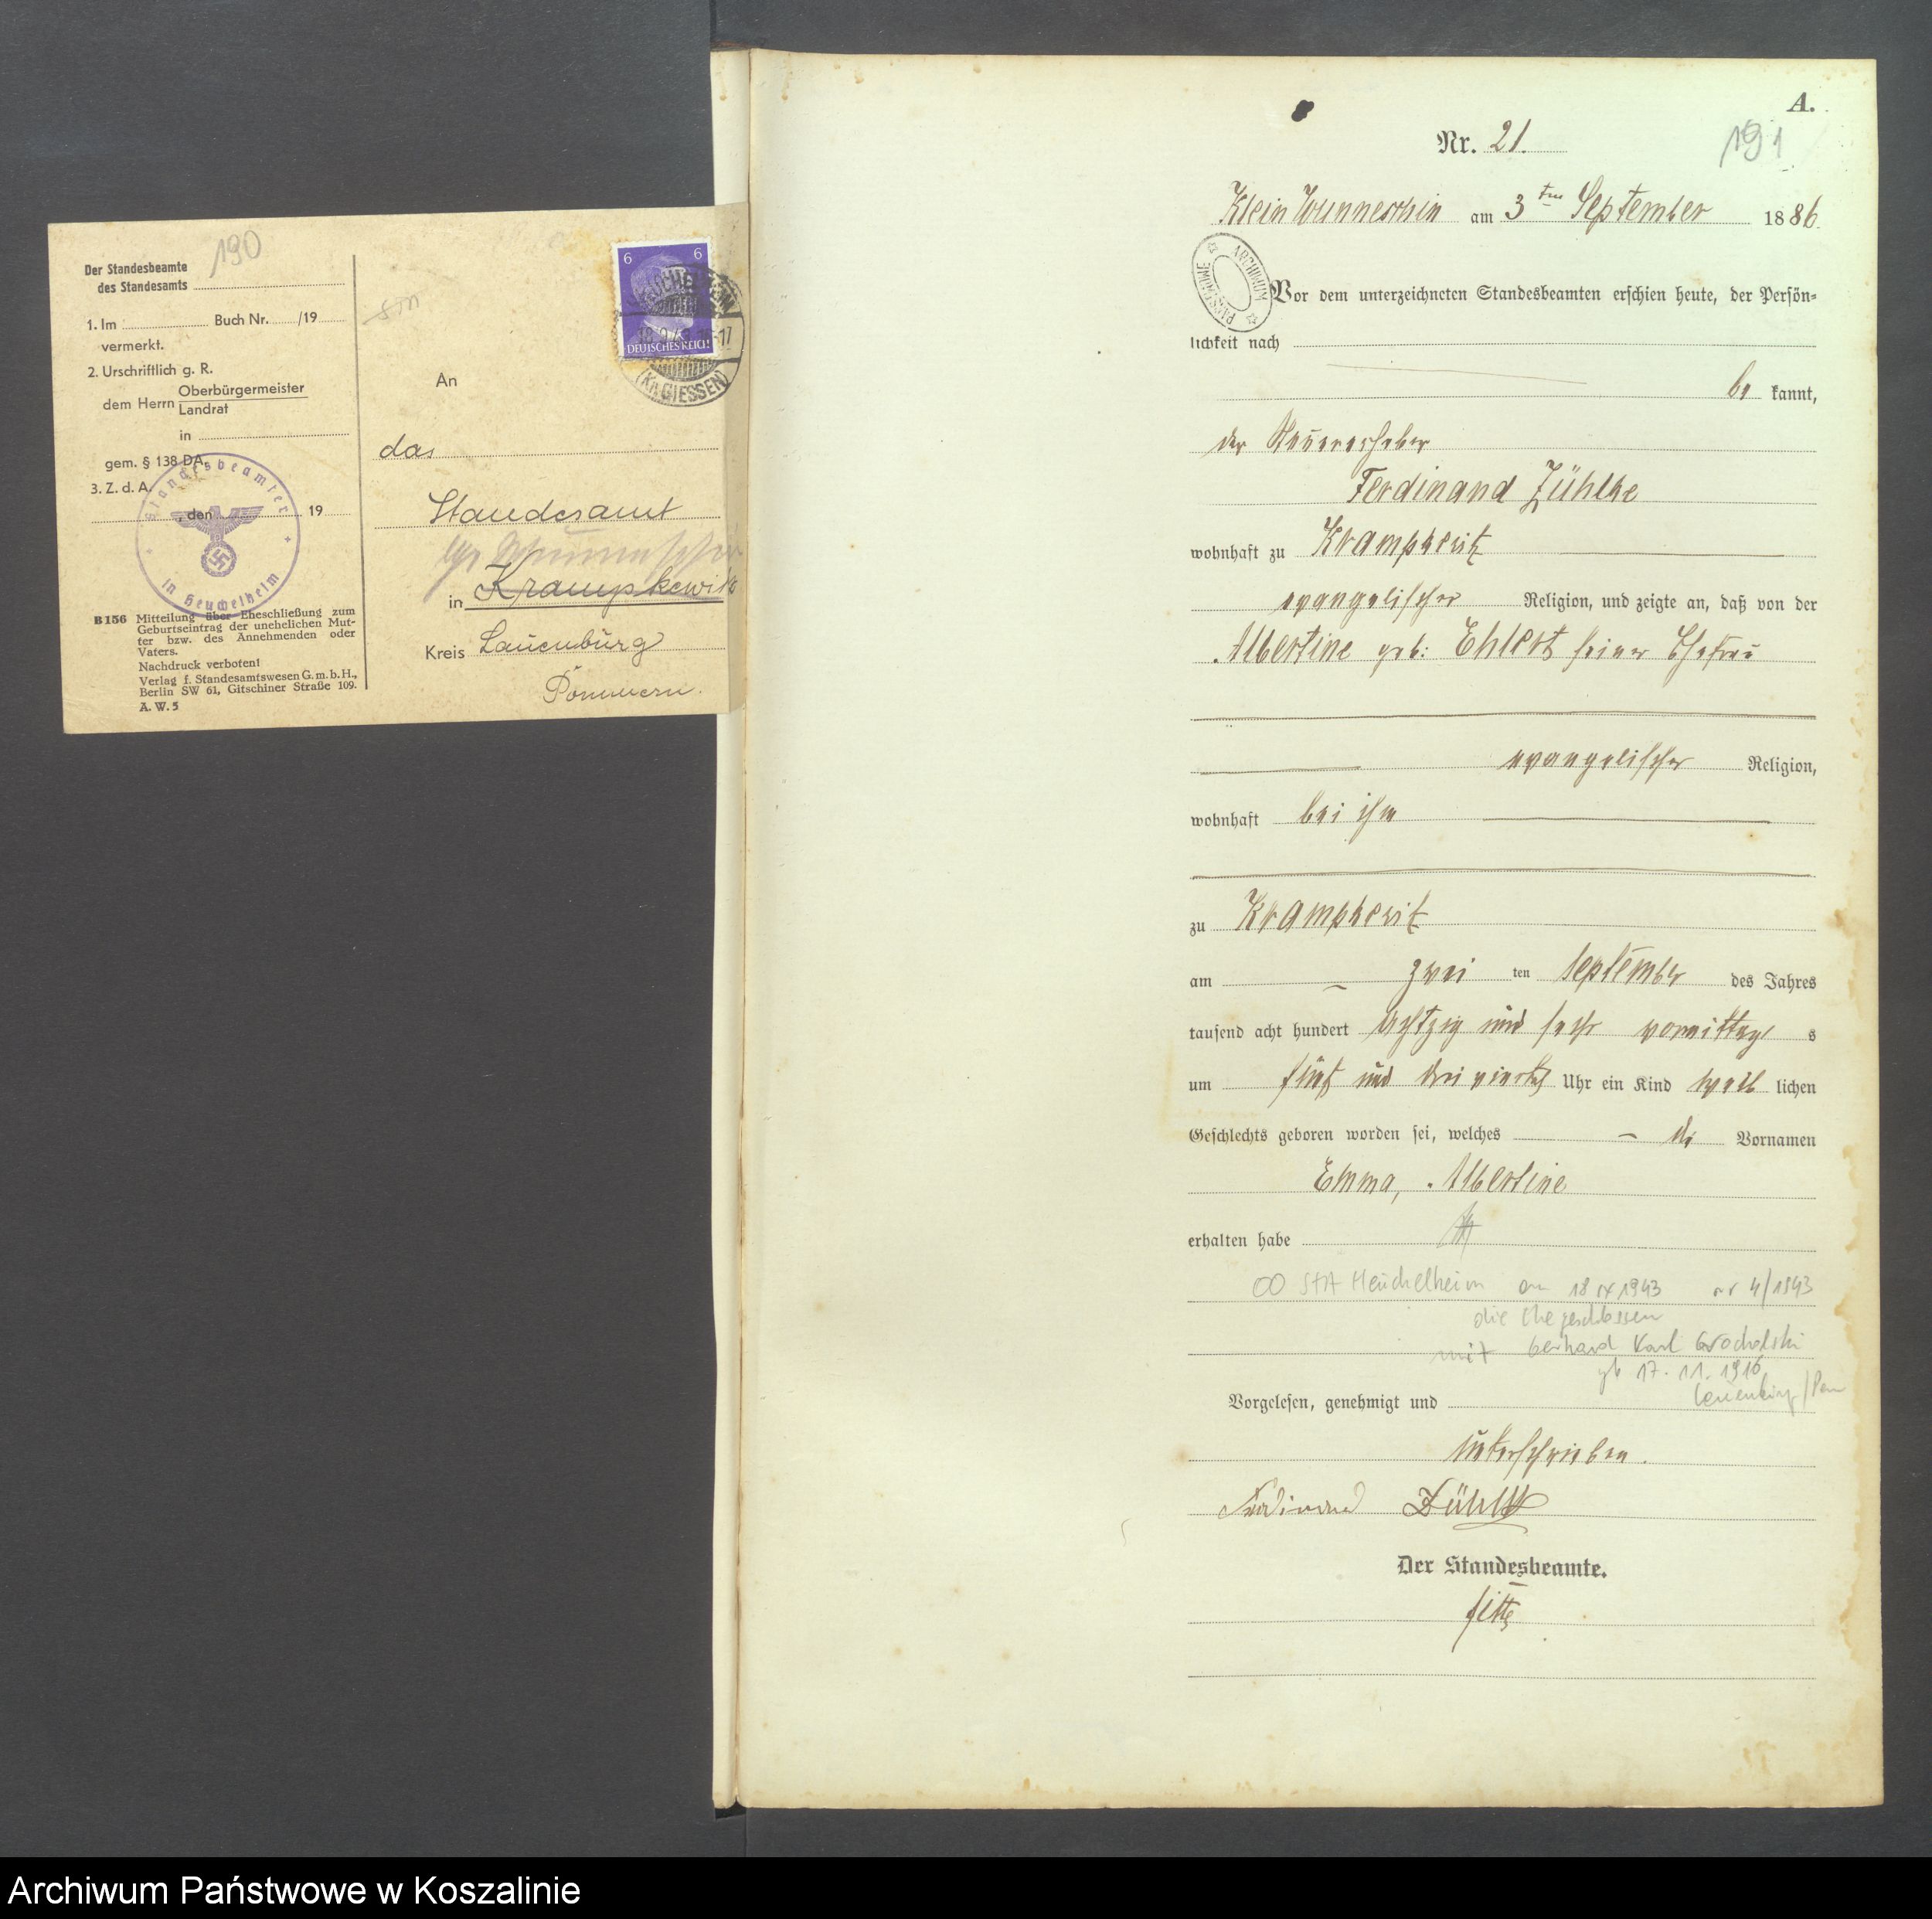 190
Der Standesbeamte
des Standesamts
1. Im Buch Nr. /19
vermerkt.
2. Urschriftlich g. R.
dem Herrn Oberbürgermeister
Landrat
in
gem. § 138 DA.
3. Z. d. A.
, den 19
Standesbeamter
in Heuchelheim
B 156 Mitteilung über Eheschließung zum
Geburtseintrag der unehelichen Mut-
ter bzw. des Annehmenden oder
Vaters.
Nachdruck verboten!
Verlag f. Standesamtswesen G. m. b. H.,
Berlin SW 61, Gitschiner Straße 109.
A. W. 5
6 6
DEUTSCHES REICH
(KR. GIESSEN)
An
das
Standesamt
in Krampkewitz
Kreis Lauenburg
Pommern.
A.
191
Nr. 21.
Klein Wunneschin am 3ten September 1886.
ARCHIWUM PAŃSTWOWE
Vor dem unterzeichneten Standesbeamten erschien heute, der Persön-
lichkeit nach
be kannt,
der
Ferdinand Zühlke
wohnhaft zu Krampkewitz
evangelischer Religion, und zeigte an, daß von der
Albertine geb: Ehlert seiner Ehefrau
evangelischer Religion,
wohnhaft bei ihm
zu Krampkewitz
am zwei ten September des Jahres
tausend acht hundert achtzig und sechs vormittag s
um fünf und drei viertel Uhr ein Kind weib lichen
Geschlechts geboren worden sei, welches die Vornamen
Emma, Albertine
erhalten habe
∞ StA Heuchelheim am 18 IX 1943 nr 4/1943
die Ehe geschlossen
mit Gerhard Karl Grocholski
gb 17. 11. 1916
Lauenburg/Pom
Vorgelesen, genehmigt und
unterschrieben.
Ferdinand Zühlke
Der Standesbeamte.
Archiwum Państwowe w Koszalinie